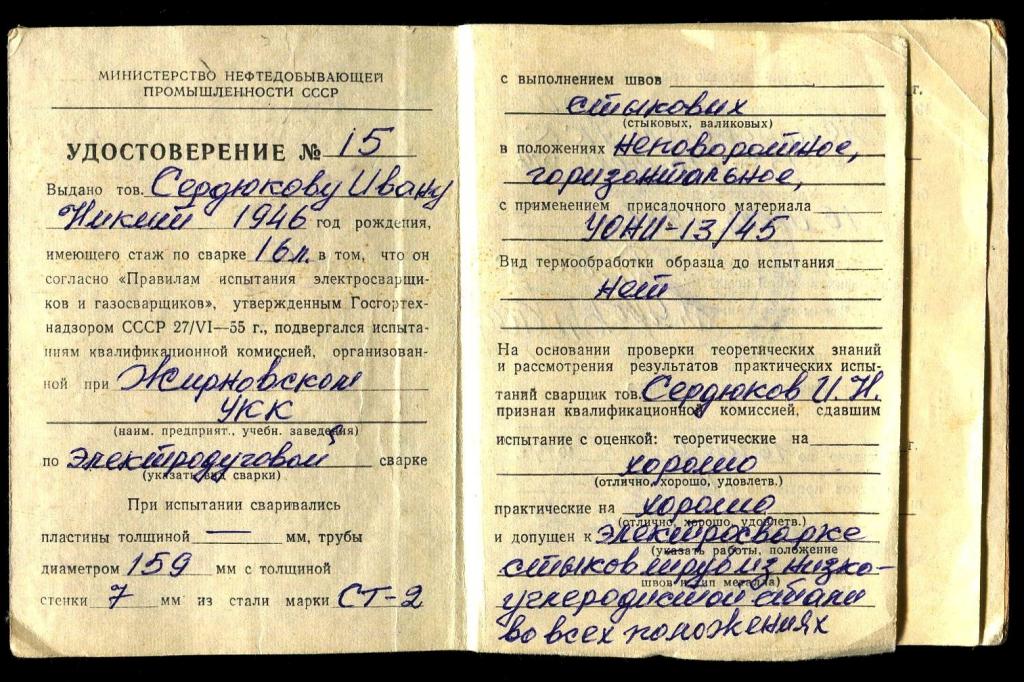 МИНИСТЕРСТВО НЕФТЕДОБЫВАЮЩЕЙ
ПРОМЫШЛЕННОСТИ СССР
УДОСТОВЕРЕНИЕ № 15
Выдано тов. Сердюкову Ивану
Никит 1946 год рождения,
имеющего стаж по сварке 16л. в том, что он
согласно «Правилам испытания электросварщи-
ков и газосварщиков», утвержденным Госгортех-
надзором СССР 27/VI—55 г., подвергался испыта-
ниям квалификационной комиссией, организован-
ной при Жирновском
УКК
(наим. предприят., учебн. заведения)
по электродуговой сварке
(указать вид сварки)
При испытании сваривались
пластины толщиной — мм, трубы
диаметром 159 мм с толщиной
стенки 7 мм из стали марки СТ-2
с выполнением швов
стыковых
(стыковых, валиковых)
в положениях неповоротное,
горизонтальное,
с применением присадочного материала
УОНИ-13/45
Вид термообработки образца до испытания
нет
На основании проверки теоретических знаний
и рассмотрения результатов практических испы-
таний сварщик тов. Сердюков И.Н.
признан квалификационной комиссией, сдавшим
испытание с оценкой: теоретические на
хорошо
(отлично, хорошо, удовлетв.)
практические на хорошо
(отлично, хорошо, удовлетв.)
и допущен к электросварке
(указать работы, положение
стыков труб из низко-
швов и тип металла)
углеродистой стали
во всех положениях
г.
г.